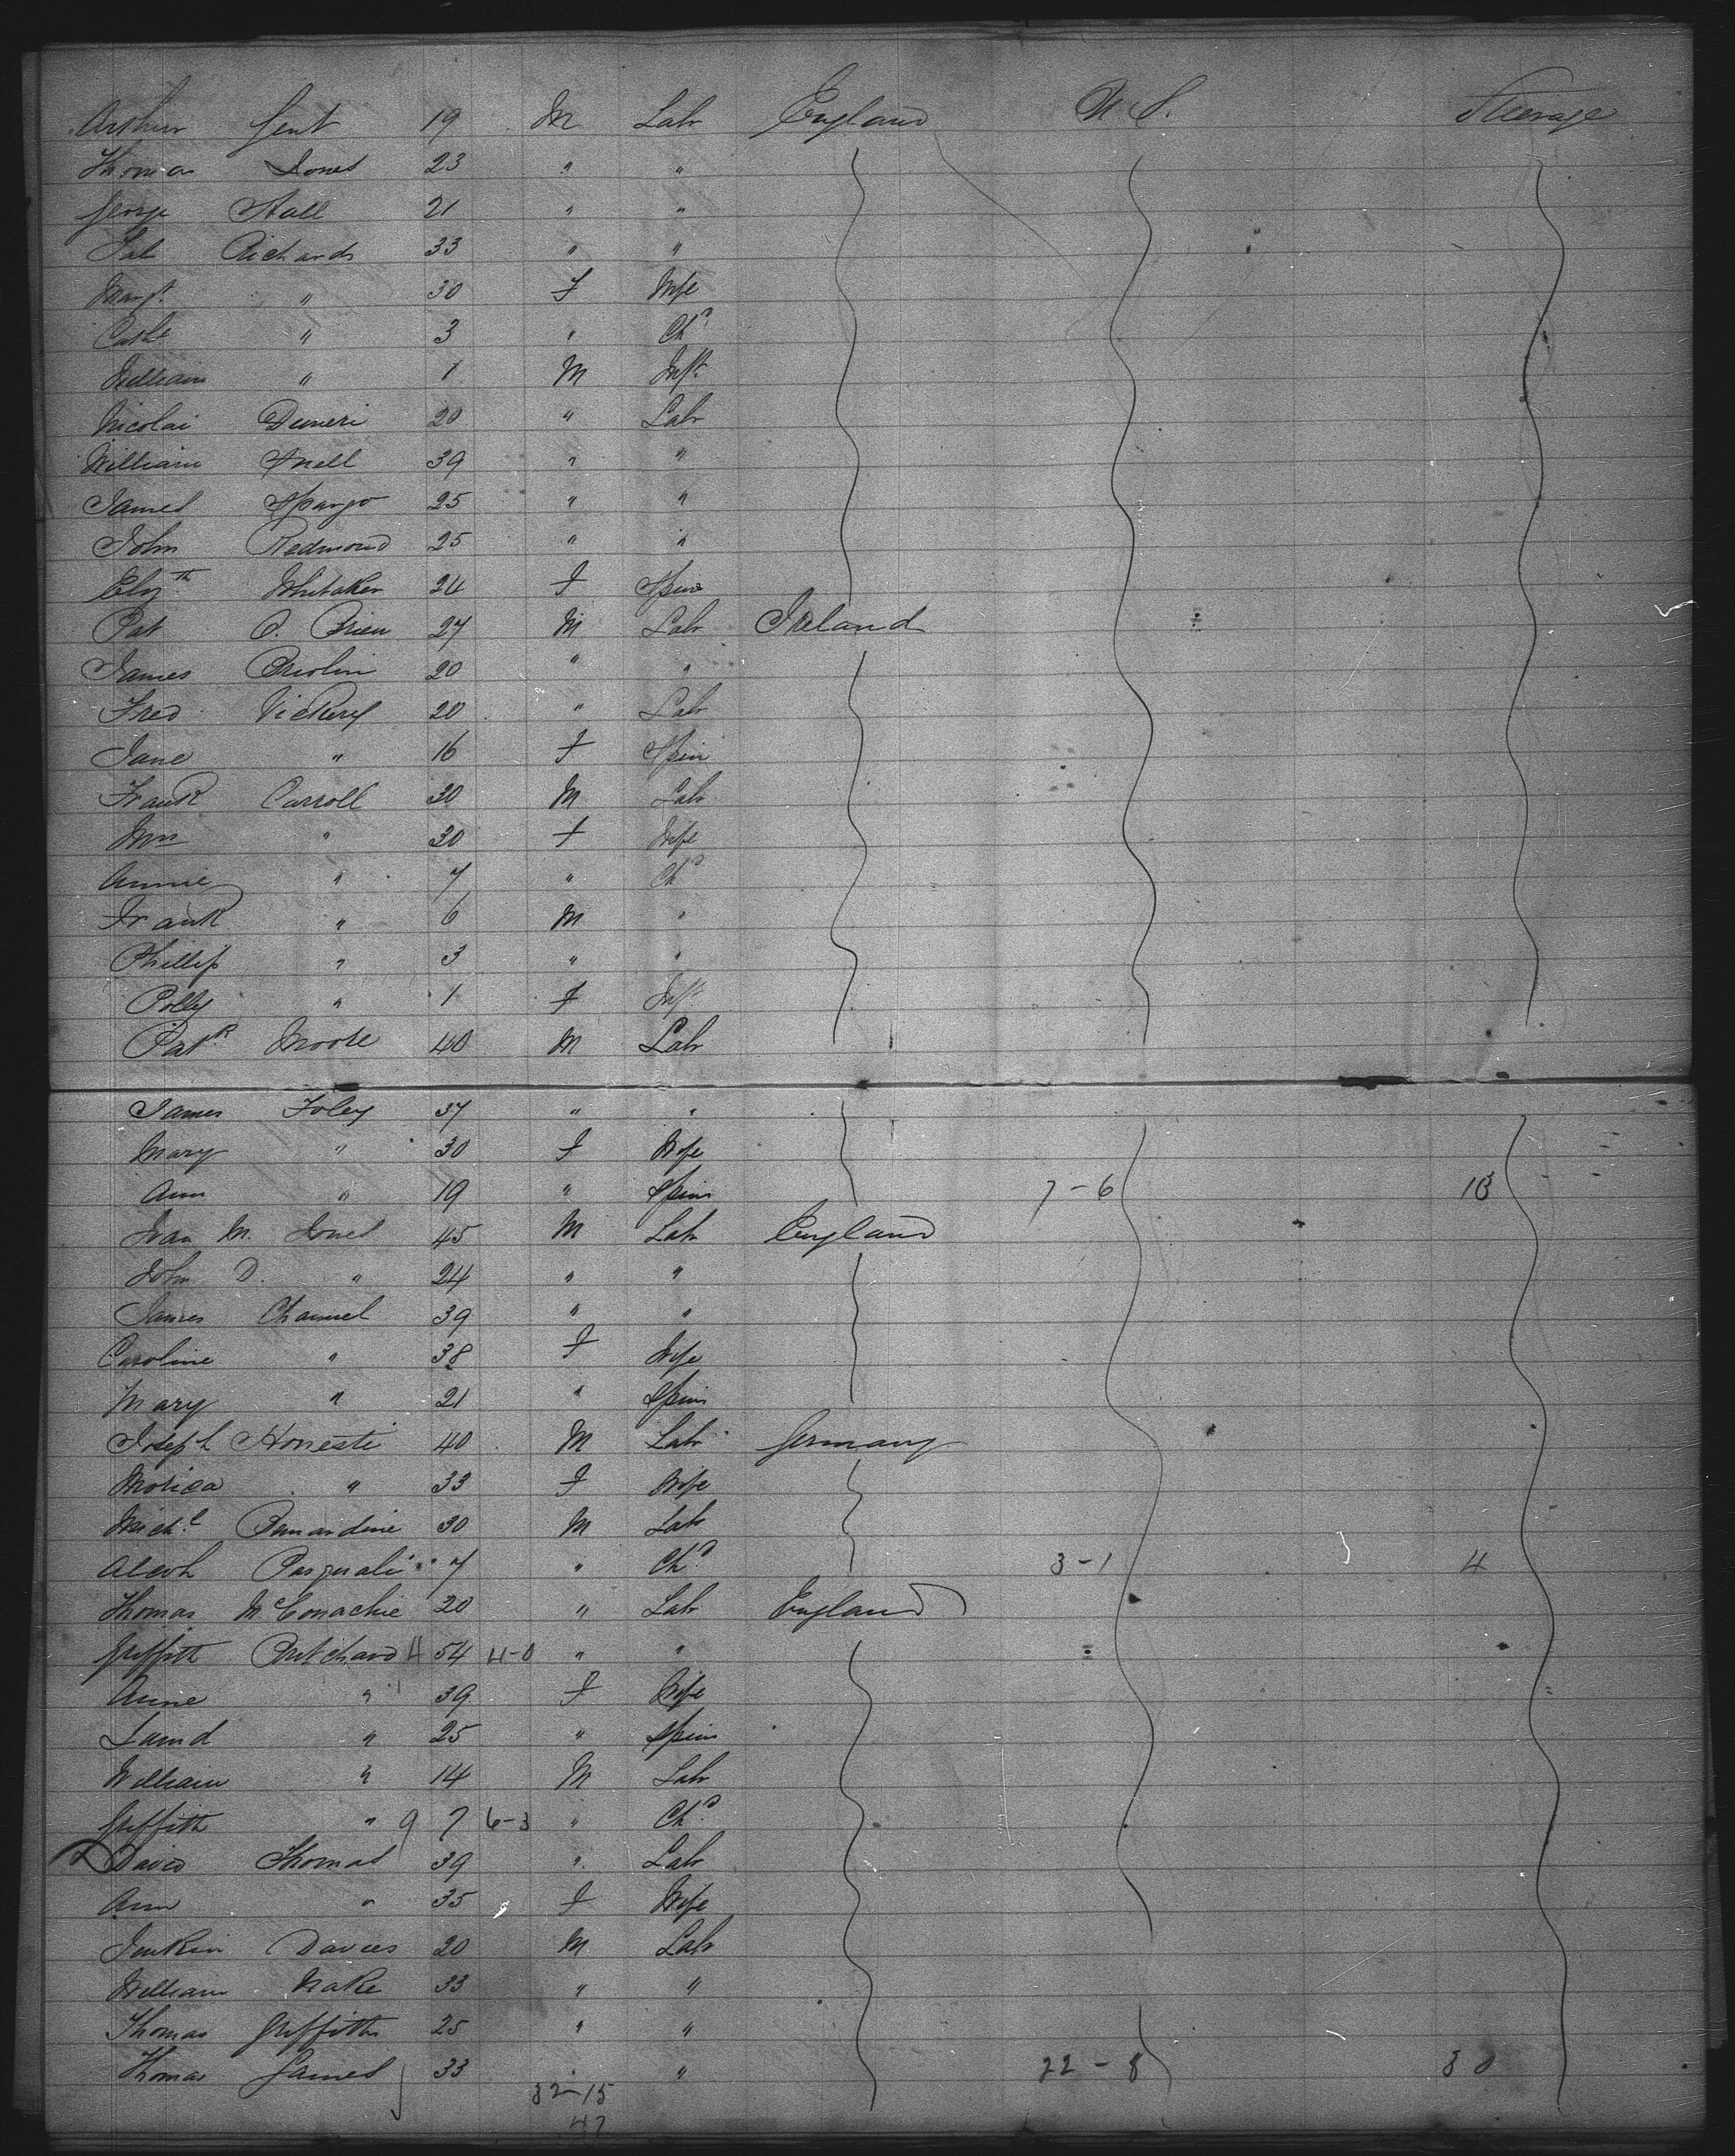 Arthur Gent 19 M Lab England U S. Steerage
Thomas Jones 23 " "
George Hall 21 " "
Richards 33 " "
Margt. " 30 F Wife
Cathe " 3 " Chd
William " 1 M Inft.
Nicolai Dumeri 20 " Lab
William Snell 39 " "
James Spargo 25 " "
John Redmond 25 " "
Elizth Whitaker 24 F Spins
Pat O. Brien 27 M Lab Ireland
James 20 " "
Fred Vickery 20 " Lab
Jane " 16 F Spin
Frank Carroll 30 M Lab
Mrs " 30 F Wife
Annie " 7 " Chd
Frank " 6 M "
Phillip " 3 " "
Polly " 1 F Inft
Patk. Moore 40 M Lab
James Foley 37 " "
Mary " 30 F Wife
Ann " 19 " Spins 7-6 13
Evan M. Jones 45 M Lab England
John D. " 24 " "
James Channel 39 " "
Caroline " 38 F Wife
Mary " 21 " Spins
Joseph Honesti 40 M Lab Germany
" 33 F Wife
Michl Pamardine 30 M Lab
Pasquali 7 " Chd 3-1 4
Thomas McConachie 20 " Lab England
Griffith Pritchard 4 54 4-0 " "
Anne " 39 F Wife
" 25 " Spins
William " 14 M Lab
Griffith " 9 7 6-3 " Chd
David Thomas 39 " Lab
Ann " 35 F Wife
Jenkin Davies 20 M Lab
William Nake 33 " "
Thomas Griffiths 25 " "
Thomas James 33 " " 22-8 30
32-15
47